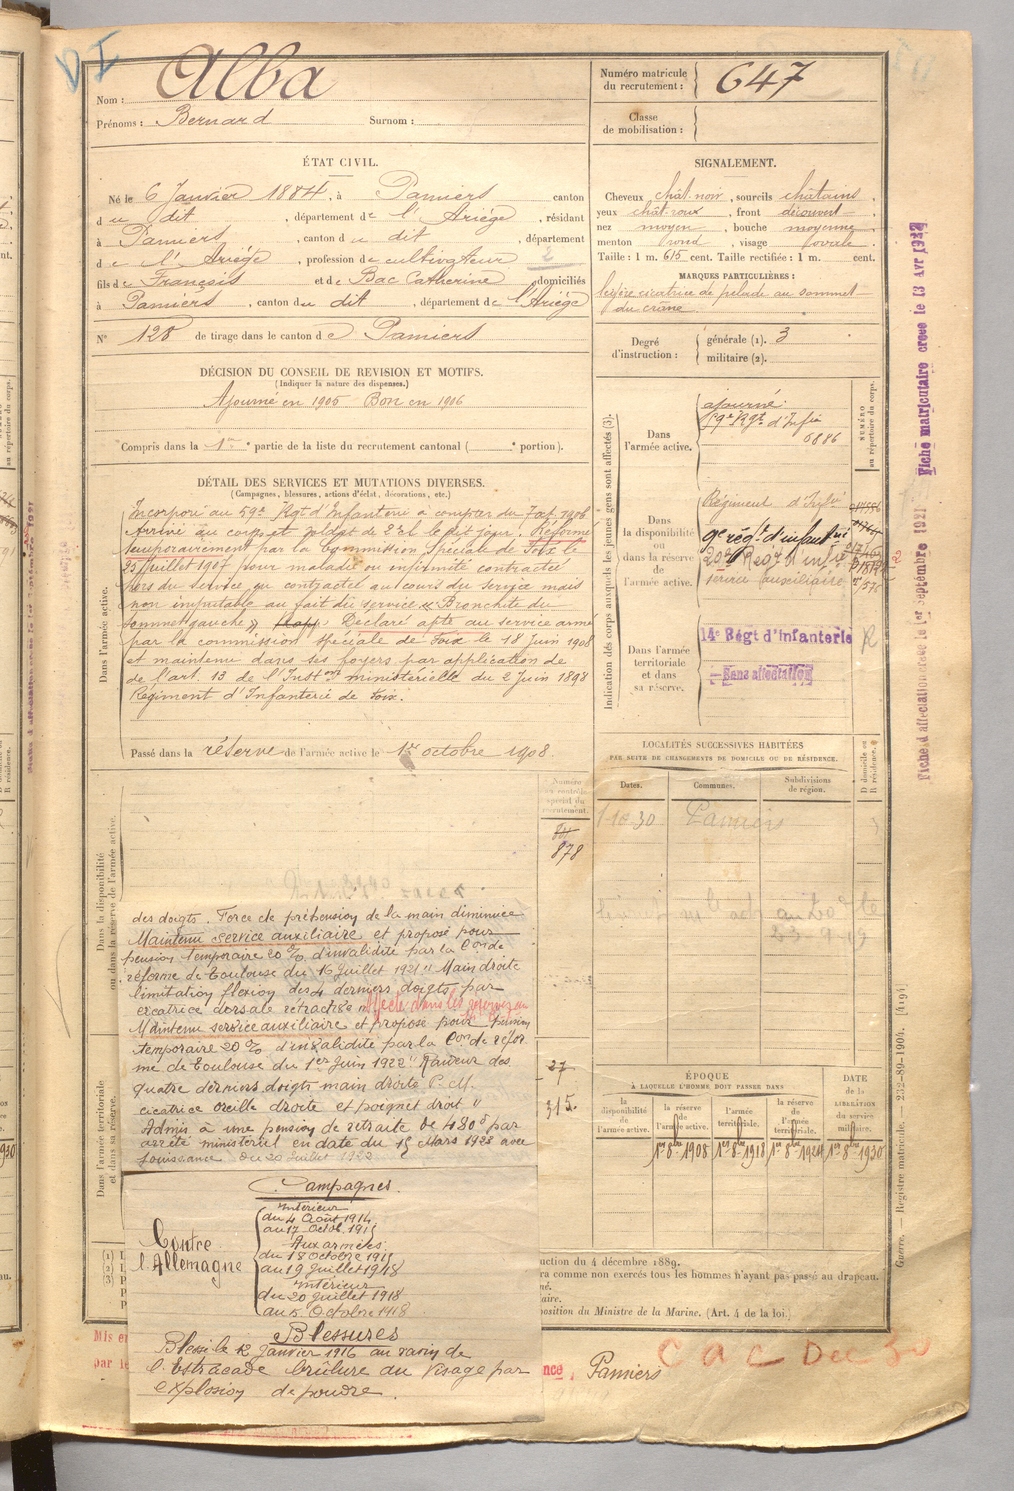 DI
Nom : Alba
Prénoms : Bernard Surnom :
Numéro matricule du recrutement : 647
Classe de mobilisation :
ÉTAT CIVIL.
Né le 6 Janvier 1884, à Pamiers canton
du dit, département de l'Ariége, résidant
à Pamiers, canton du dit, département
de l'Ariége, profession de cultivateur 2
fils de François et de Bac Catherine domiciliés
à Pamiers, canton du dit, département de l'Ariége
N° 128 de tirage dans le canton de Pamiers
SIGNALEMENT.
Cheveux chât. noir, sourcils châtains,
yeux chât. roux, front découvert,
nez moyen, bouche moyenne,
menton rond, visage ovale.
Taille : 1 m. 615 cent. Taille rectifiée : 1 m. cent.
MARQUES PARTICULIÈRES :
légère cicatrice de pelade au sommet
du crâne
Degré d'instruction : générale (1). 3
militaire (2).
DÉCISION DU CONSEIL DE REVISION ET MOTIFS.
(Indiquer la nature des dispenses.)
Ajourné en 1905 Bon en 1906
Compris dans la 1re partie de la liste du recrutement cantonal ( e portion).
DÉTAIL DES SERVICES ET MUTATIONS DIVERSES.
(Campagnes, blessures, actions d'éclat, décorations, etc.)
Dans l'armée active.
Incorporé au 59e Rgt d'Infanterie à compter du 7 oct. 1906
Arrivé au corps et soldat de 2e cl le dit jour. Réformé
temporairement par la Commission Spéciale de Foix le
25 Juillet 1907 pour maladie ou infirmité contractée
hors du service, ou contractée au cours du service mais
non imputable au fait du service « Bronchite du
sommet gauche » Déclaré apte au service armé
par la commission spéciale de Foix le 18 Juin 1908
et maintenu dans ses foyers par application de
de l'art. 13 de l'Inston ministérielle du 2 Juin 1898
Régiment d'Infanterie de Foix.
Passé dans la réserve de l'armée active le 1er octobre 1908.
Indication des corps auxquels les jeunes gens sont affectés (3).
NUMÉRO au répertoire du corps.
Dans l'armée active.
ajourné
59e Rgt d'Infie
6886
Dans la disponibilité ou dans la réserve de l'armée active.
Régiment d'Infie
9e régt d'infanterie
20e Regt d'Infie
service auxiliaire
Dans l'armée territoriale et dans sa réserve.
14e Régt d'Infanterie
Sans affectation
R
LOCALITÉS SUCCESSIVES HABITÉES
PAR SUITE DE CHANGEMENTS DE DOMICILE OU DE RÉSIDENCE.
Dates. Communes. Subdivisions de région. D domicile ou R résidence.
1-10-30 Pamiers
Dans la disponibilité ou dans la réserve de l'armée active.
Numéro au contrôle spécial du recrutement.
878
des doigts. Force de préhension de la main diminuée
Maintenu service auxiliaire et proposé pour
pension temporaire 20 % d'invalidité par la Con de
réforme de Toulouse du 16 Juillet 1921 " Main droite
limitation flexion des 4 derniers doigts par
cicatrice dorsale rétractile
Affecté dans les réserves au
Maintenu service auxiliaire et proposé pour pension
temporaire 20 % d'invalidité par la Con de réfor
me de Toulouse du 1er Juin 1922 " Raideur des
quatre derniers doigts main droite P. M.
cicatrice oreille droite et poignet droit "
Admis à une pension de retraite de 480 f par
arrêté ministériel en date du 15 Mars 1923 avec
jouissance du 20 Juillet 1922
27
315.
Dans l'armée territoriale et dans sa réserve.
ÉPOQUE
À LAQUELLE L'HOMME DOIT PASSER DANS
DATE de la LIBÉRATION du service militaire.
la disponibilité de l'armée active. la réserve de l'armée active. l'armée territoriale. la réserve de l'armée territoriale.
1er 8bre 1908 1er 8bre 1918 1er 8bre 1924 1er 8bre 1930
Campagnes.
Contre l'Allemagne
Intérieur
du 4 Août 1914
au 17 Octob. 1915
Aux armées
du 18 octobre 1915
au 19 Juillet 1918
Intérieur
du 20 Juillet 1918
au 5 Octobre 1918
Blessures
Blessé le 12 Janvier 1916 au ravin de
l'Estracade brûlure au visage par
explosion de poudre.
uction du 4 décembre 1889.
ra comme non exercés tous les hommes n'ayant pas passé au drapeau.
né.
aire.
position du Ministre de la Marine. (Art. 4 de la loi.)
Mis en
par le
nce, Pamiers
CAC Dec 30
Fiche matriculaire créée le 13 Avr 1927
Fiche d'affectation créée le 1er Septembre 1921
Guerre. — Registre matricule. — 232-89-1904. [419]